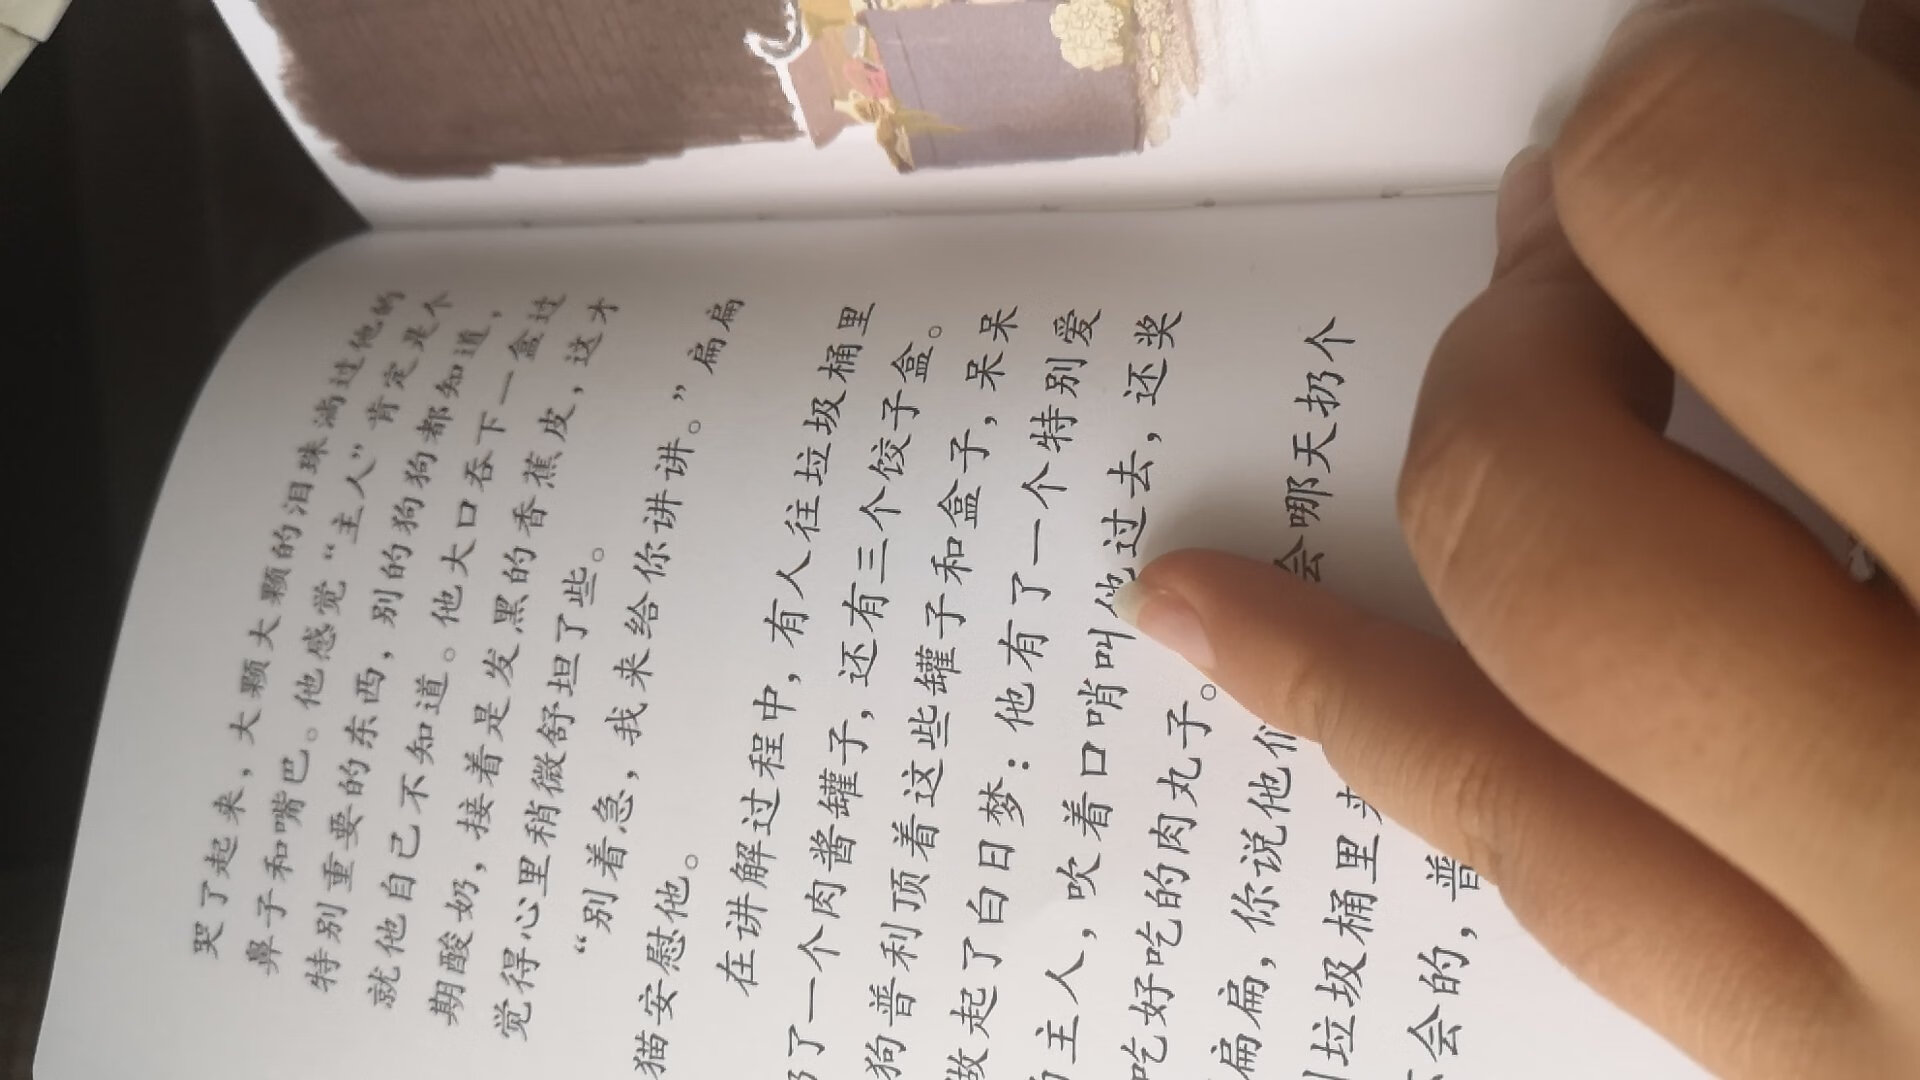 哭了起来，大颗大颗的泪珠淌过他的
鼻子和嘴巴。他感觉“主人”肯定是个
特别重要的东西，别的狗狗都知道，
就他自己不知道。他大口吞下一盒过
期酸奶，接着是发黑的香蕉皮，这才
觉得心里稍微舒坦了些。
“别着急，我来给你讲讲。”扁扁
猫安慰他。
在讲解过程中，有人往垃圾桶里
了一个肉酱罐子，还有三个饺子盒。
狗普利顶着这些罐子和盒子，呆呆
做起了白日梦：他有了一个特别爱
主人，吹着口哨叫他过去，还奖
吃好吃的肉丸子。
扁扁，你说他们 会哪天扔个
垃圾桶里
会的，普